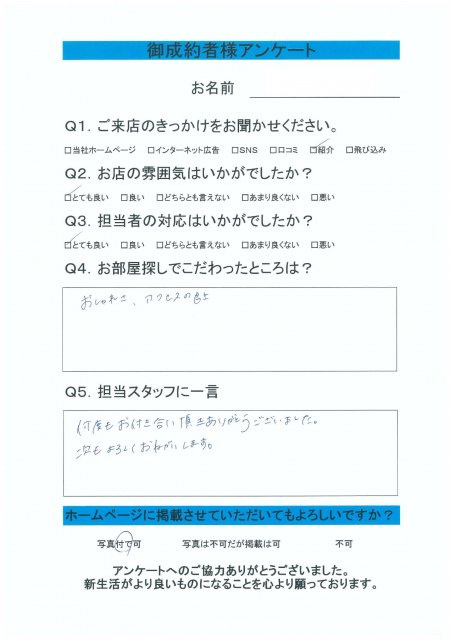 御成約者様アンケート
お名前
Q1．ご来店のきっかけをお聞かせください。
□当社ホームページ □インターネット広告 □SNS □口コミ □紹介 □飛び込み
Q2．お店の雰囲気はいかがでしたか？
□とても良い □良い □どちらとも言えない □あまり良くない □悪い
Q3．担当者の対応はいかがでしたか？
□とても良い □良い □どちらとも言えない □あまり良くない □悪い
Q4．お部屋探しでこだわったところは？
おしゃれさ、アクセスの良さ
Q5．担当スタッフに一言
何度もお付き合い頂きありがとうございました。
次もよろしくおねがいします。
ホームページに掲載させていただいてもよろしいですか？
写真付で可 写真は不可だが掲載は可 不可
アンケートへのご協力ありがとうございました。
新生活がより良いものになることを心より願っております。